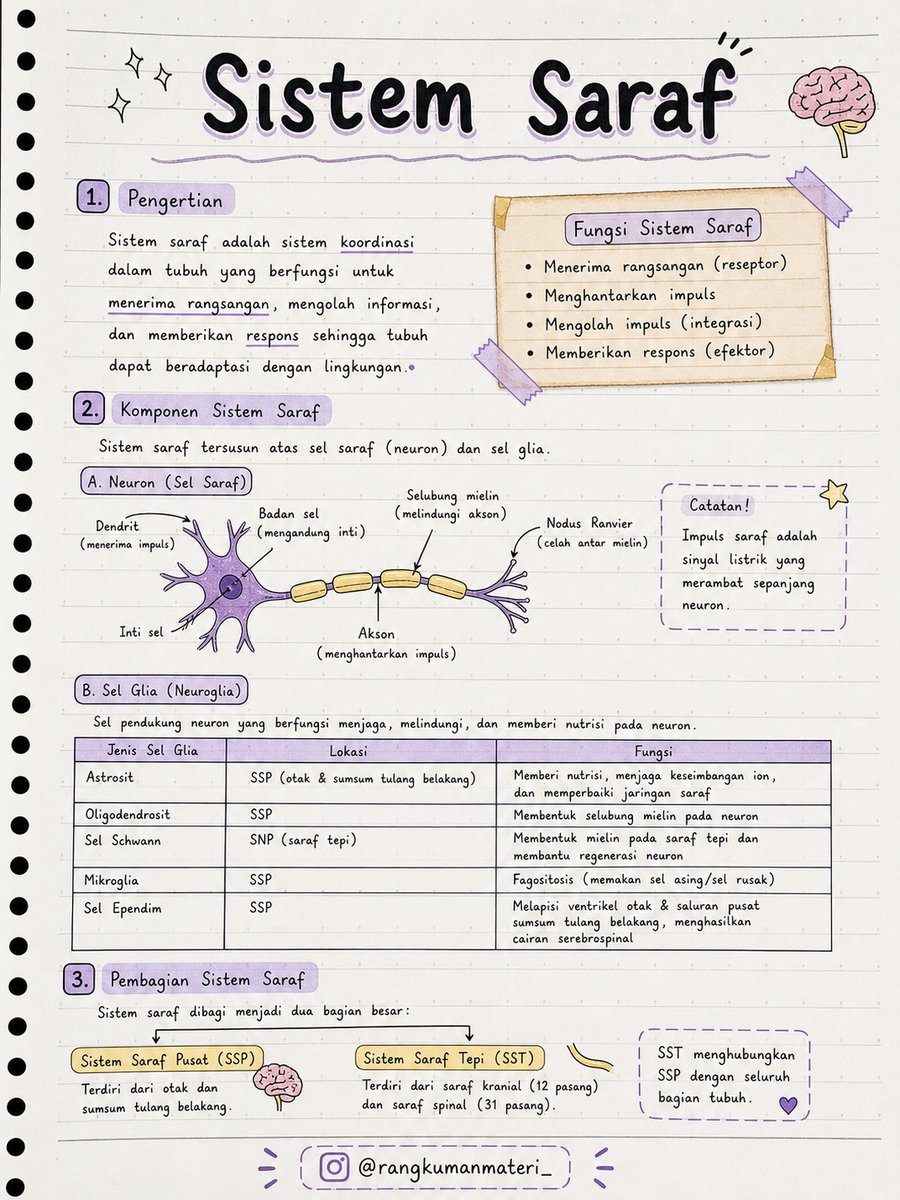 Sistem Saraf
1. Pengertian
Sistem saraf adalah sistem koordinasi
dalam tubuh yang berfungsi untuk
menerima rangsangan, mengolah informasi,
dan memberikan respons sehingga tubuh
dapat beradaptasi dengan lingkungan.
Fungsi Sistem Saraf
• Menerima rangsangan (reseptor)
• Menghantarkan impuls
• Mengolah impuls (integrasi)
• Memberikan respons (efektor)
2. Komponen Sistem Saraf
Sistem saraf tersusun atas sel saraf (neuron) dan sel glia.
A. Neuron (Sel Saraf)
Dendrit
(menerima impuls)
Badan sel
(mengandung inti)
Selubung mielin
(melindungi akson)
Nodus Ranvier
(celah antar mielin)
Inti sel
Akson
(menghantarkan impuls)
Catatan!
Impuls saraf adalah
sinyal listrik yang
merambat sepanjang
neuron.
B. Sel Glia (Neuroglia)
Sel pendukung neuron yang berfungsi menjaga, melindungi, dan memberi nutrisi pada neuron.
Jenis Sel Glia Lokasi Fungsi
Astrosit SSP (otak & sumsum tulang belakang) Memberi nutrisi, menjaga keseimbangan ion,
dan memperbaiki jaringan saraf
Oligodendrosit SSP Membentuk selubung mielin pada neuron
Sel Schwann SNP (saraf tepi) Membentuk mielin pada saraf tepi dan
membantu regenerasi neuron
Mikroglia SSP Fagositosis (memakan sel asing/sel rusak)
Sel Ependim SSP Melapisi ventrikel otak & saluran pusat
sumsum tulang belakang, menghasilkan
cairan serebrospinal
3. Pembagian Sistem Saraf
Sistem saraf dibagi menjadi dua bagian besar:
Sistem Saraf Pusat (SSP)
Terdiri dari otak dan
sumsum tulang belakang.
Sistem Saraf Tepi (SST)
Terdiri dari saraf kranial (12 pasang)
dan saraf spinal (31 pasang).
SST menghubungkan
SSP dengan seluruh
bagian tubuh.
@rangkumanmateri_